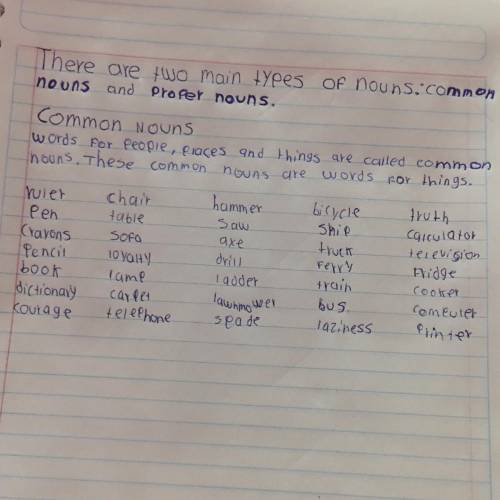 There are two main types of nouns: common
nouns and proper nouns.
Common nouns
words for people, places and things are called common
nouns. These common nouns are words for things.
ruler chair hammer bicycle truth
pen table saw ship calculator
crayons sofa axe truck television
pencil loyalty drill ferry fridge
book lamp ladder train cooker
dictionary carpet lawnmower bus computer
courage telephone spade laziness printer